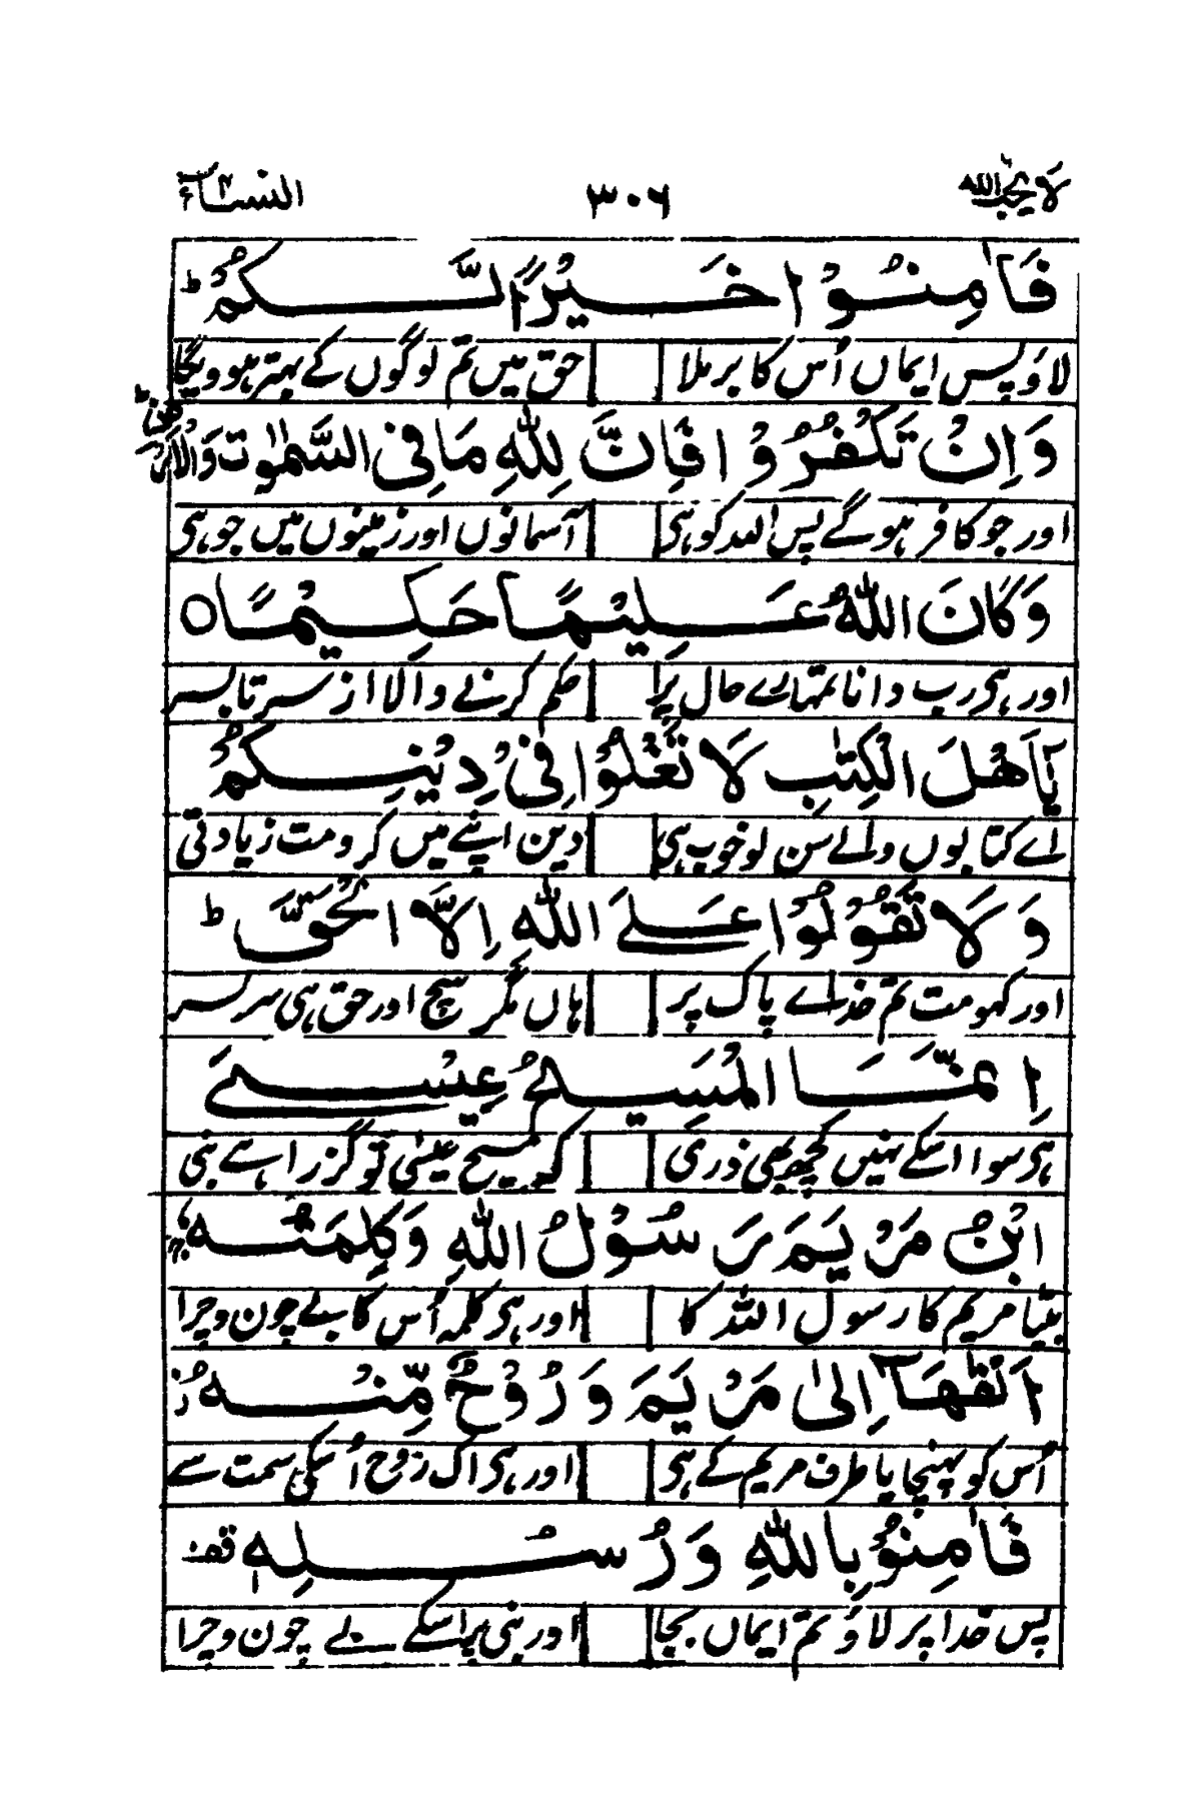 لا يحب الله ٣٠٦ النساء ٤
فَاٰمِنُوْا خَيْرًا لَّكُمْ ؕ
لاؤ پس ایماں اُس کا برملا حق میں تم لوگوں کے بہتر ہوویگا
وَاِنْ تَكْفُرُوْا فَاِنَّ لِلّٰهِ مَا فِى السَّمٰوٰتِ وَالْاَرْضِ ؕ
اور جو کافر ہوگے پس اللہ کو ہی آسمانوں اور زمینوں میں جو ہی
وَكَانَ اللّٰهُ عَلِيْمًا حَكِيْمًا ○
اور ہی رب دانا تمہارے حال پر حکم کرنے والا از سر تا بسر
يٰۤاَهْلَ الْكِتٰبِ لَا تَغْلُوْا فِىْ دِيْنِكُمْ
اے کتابوں والے سن لو خوب ہی دین اپنے میں کرو مت زیادتی
وَلَا تَقُوْلُوْا عَلَى اللّٰهِ اِلَّا الْحَقَّ ؕ
اور کہو مت تم خدائے پاک پر ہاں مگر سچ اور حق ہی سر بسر
اِنَّمَا الْمَسِيْحُ عِيْسَى
ہی سوا اسکے نہیں کچھ بھی ذری کہ مسیح عیسٰی تو گزرا ہے نبی
ابْنُ مَرْيَمَ رَسُوْلُ اللّٰهِ وَكَلِمَتُهٗ ۚ
بیٹا مریم کا رسول اللہ کا اور ہی کلمہ اُس کا بے چون و چرا
اَلْقٰهَاۤ اِلٰى مَرْيَمَ وَرُوْحٌ مِّنْهُ ؗ
اُس کو پہنچایا طرف مریم کے ہی اور ہی اک روح اُسکی سمت سے
فَاٰمِنُوْا بِاللّٰهِ وَرُسُلِهٖ ۟
پس خدا پر لاؤ تم ایماں بجا اور نبی پر اسکے بے چون و چرا